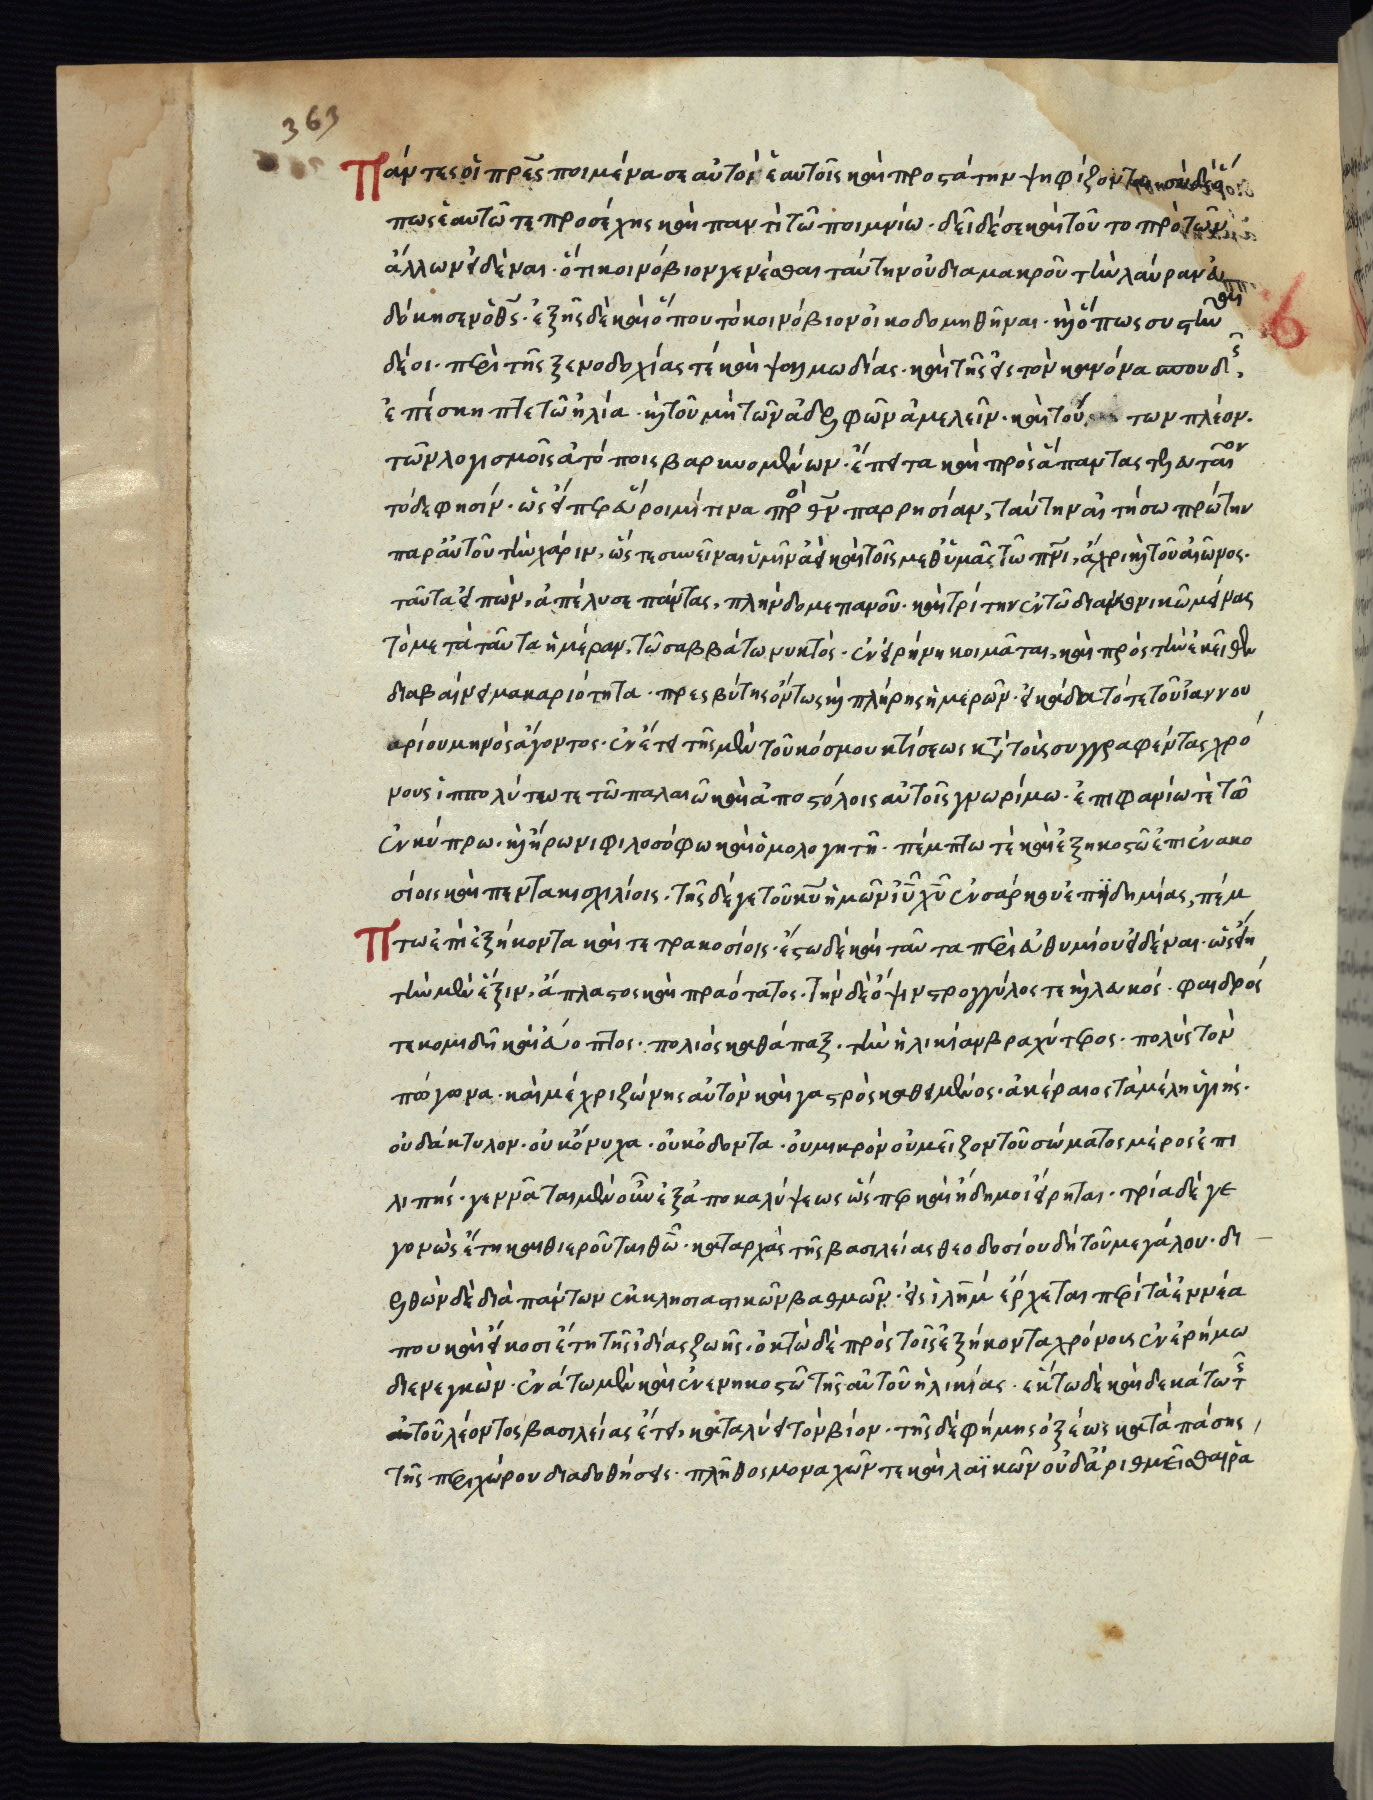 363
Πάντες οἱ πρ̅ες ποιμένα σε αὐτὸν ἑαυτοῖς καὶ προστάτην ψηφίζονται
πως ἑαυτῶ τε προσέχης καὶ παντὶ τῶ ποιμνίω· δεῖ δέ σε καὶ τοῦτο πρὸ τῶν
ἄλλων εἰδέναι· ὅτι κοινόβιον γενέσθαι ταύτην οὐ διαμακροῦ τὴν λαύραν εὐ
δόκησεν ὁ θ̅ς· ἑξῆς δὲ καὶ ὅπου τὸ κοινόβιον οἰκοδομηθῆναι· καὶ ὅπως συστῆναι
δέοι· περὶ τῆς ξενοδοχίας τέ καὶ ψαλμωδίας· καὶ τῆς εἰς τὸν κανόνα σπουδῆς,
ἐπέσκηπτε τῶ ἠλία· καὶ τοῦ μὴ τῶν ἀδελφῶν ἀμελεῖν· καὶ τού των πλέον·
τῶν λογισμοῖς ἀτόποις βαρυνομένων· ἔπειτα καὶ πρὸς ἅπαντας τελευταῖον
τόδε φησίν· ὡς εἴπερ εὕροιμί τινα πρὸς θ̅ν παρρησίαν, ταύτην αἰτήσω πρώτην
παρ αὐτοῦ τὴν χάριν, ὥς τε συνεῖναι ὑμῖν ἀεὶ καὶ τοῖς μεθ ὑμᾶς τῶ πν̅ι, ἄχρι καὶ τοῦ αἰῶνος·
ταῦτα εἰπὼν, ἀπέλυσε πάντας, πλὴν δομεπανοῦ· καὶ τρίτην ἐν τῶ διακονικῶ μείνας
τὸ μετὰ ταῦτα ἡμέραν, τῶ σαββάτω νυκτὸς· ἐν εἰρήνη κοιμᾶται, καὶ πρὸς τὴν ἐκεῖθεν
διαβαίνει μακαριότητα· πρεσβύτης ὄντως καὶ πλήρης ἡμερῶν· εἰκάδα τότε τοῦ ἰαννου
αρίου μηνὸς ἄγοντος· ἐν ἔτει τῆς μὲν τοῦ κόσμου κτίσεως κατὰ τοὺς συγγραφέντας χρό
νους ἱππολύτω τε τῶ παλαιῶ καὶ ἀποστόλοις αὐτοῖς γνωρίμω· ἐπιφανίω τὲ τῶ
ἐν κύπρω· καὶ ἤρωνι φιλοσόφω καὶ ὁμολογητῆ· πέμπτω τὲ καὶ ἑξηκοστῶ ἐπὶ ἐνακο
σίοις καὶ πεντακισχιλίοις· τῆς δέ γε τοῦ κ̅υ ἡμῶν ἰ̅υ χ̅υ ἐν σαρκὶ ἐπιδημίας, πέμ
πτω ἐπὶ ἑξήκοντα καὶ τετρακοσίοις· ἔστω δὲ καὶ ταῦτα περὶ εὐθυμίου εἰδέναι· ὡς εἴη
τὴν μὲν ἕξιν, ἄπλαστος καὶ πραότατος· τὴν δὲ ὄψιν στρογγύλος τε καὶ λευκός· φαιδρός
τε κομιδῆ καὶ εὔοπτος· πολιὸς καθάπαξ· τὴν ἡλικίαν βραχύτερος· πολὺς τὸν
πώγωνα· καὶ μέχρι ζώνης αὐτὸν καὶ γαστρὸς καθειμένος· ἀκέραιος τὰ μέλη ὑγιής·
οὐ δάκτυλον· οὐκ ὄνυχα· οὐκ ὀδόντα· οὐ μικρὸν οὐ μεῖζον τοῦ σώματος μέρος ἐπι
λιπής· γεννᾶται μὲν οὖν ἐξ ἀποκαλύψεως ὥσπερ καὶ ἤδη μοι εἴρηται· τρία δὲ γε
γονὼς ἔτη καθιεροῦται θ̅ω· κατ αρχὰς τῆς βασιλείας θεοδοσίου δὴ τοῦ μεγάλου· δι
ελθὼν δὲ διὰ πάντων ἐκκλησιαστικῶν βαθμῶν· εἰς ἱλη̅μ ἔρχεται περὶ τὰ ἐννέα
που καὶ εἴκοσι ἔτη τῆς ἰδίας ζωῆς· ὀκτὼ δὲ πρὸς τοῖς ἑξήκοντα χρόνους ἐν ἐρήμω
διενεγκὼν· ἐνάτω μὲν καὶ ἐνενηκοστῶ τῆς αὐτοῦ ἡλικίας· ἕκτω δὲ καὶ δεκάτω τῆς
τοῦ λέοντος βασιλείας ἔτει, καταλύει τὸν βίον· τῆς δὲ φήμης ὀξέως κατὰ πάσης
τῆς περιχώρου διαδοθήσεις· πλῆθος μοναχῶν τε καὶ λαϊκῶν οὐδ ἀριθμεῖσθαι ῥα